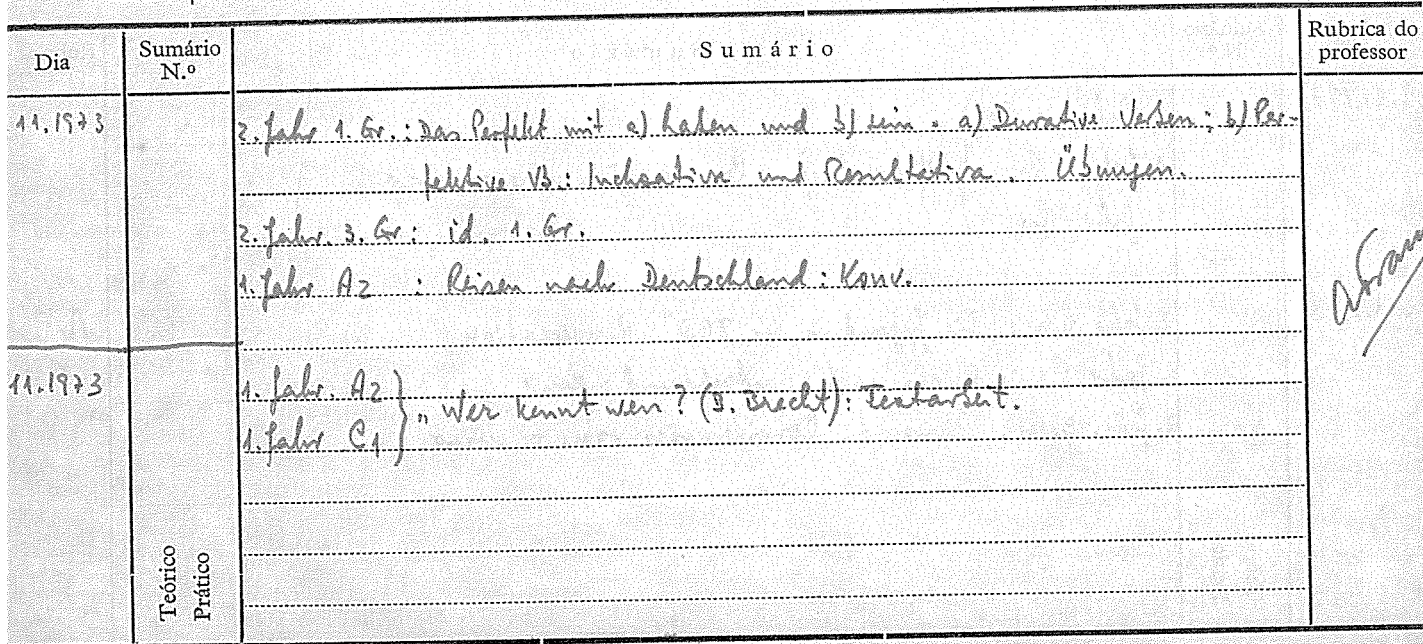 Dia Sumário N.º Sumário Rubrica do professor
11.1973 2. Jahr 1. Gr.: Das Perfekt mit a) haben und b) sein. a) Durative Verben; b) Per-
fektive Vb: Inchoativa und Resultativa. Übungen.
2. Jahr. 3. Gr: id. 1. Gr.
1. Jahr A2 : Reisen nach Deutschland: Konv.
11.1973 1. Jahr. A2 } „Wer kennt wen? (B. Brecht): Textarbeit.
1. Jahr C1
Teórico
Prático